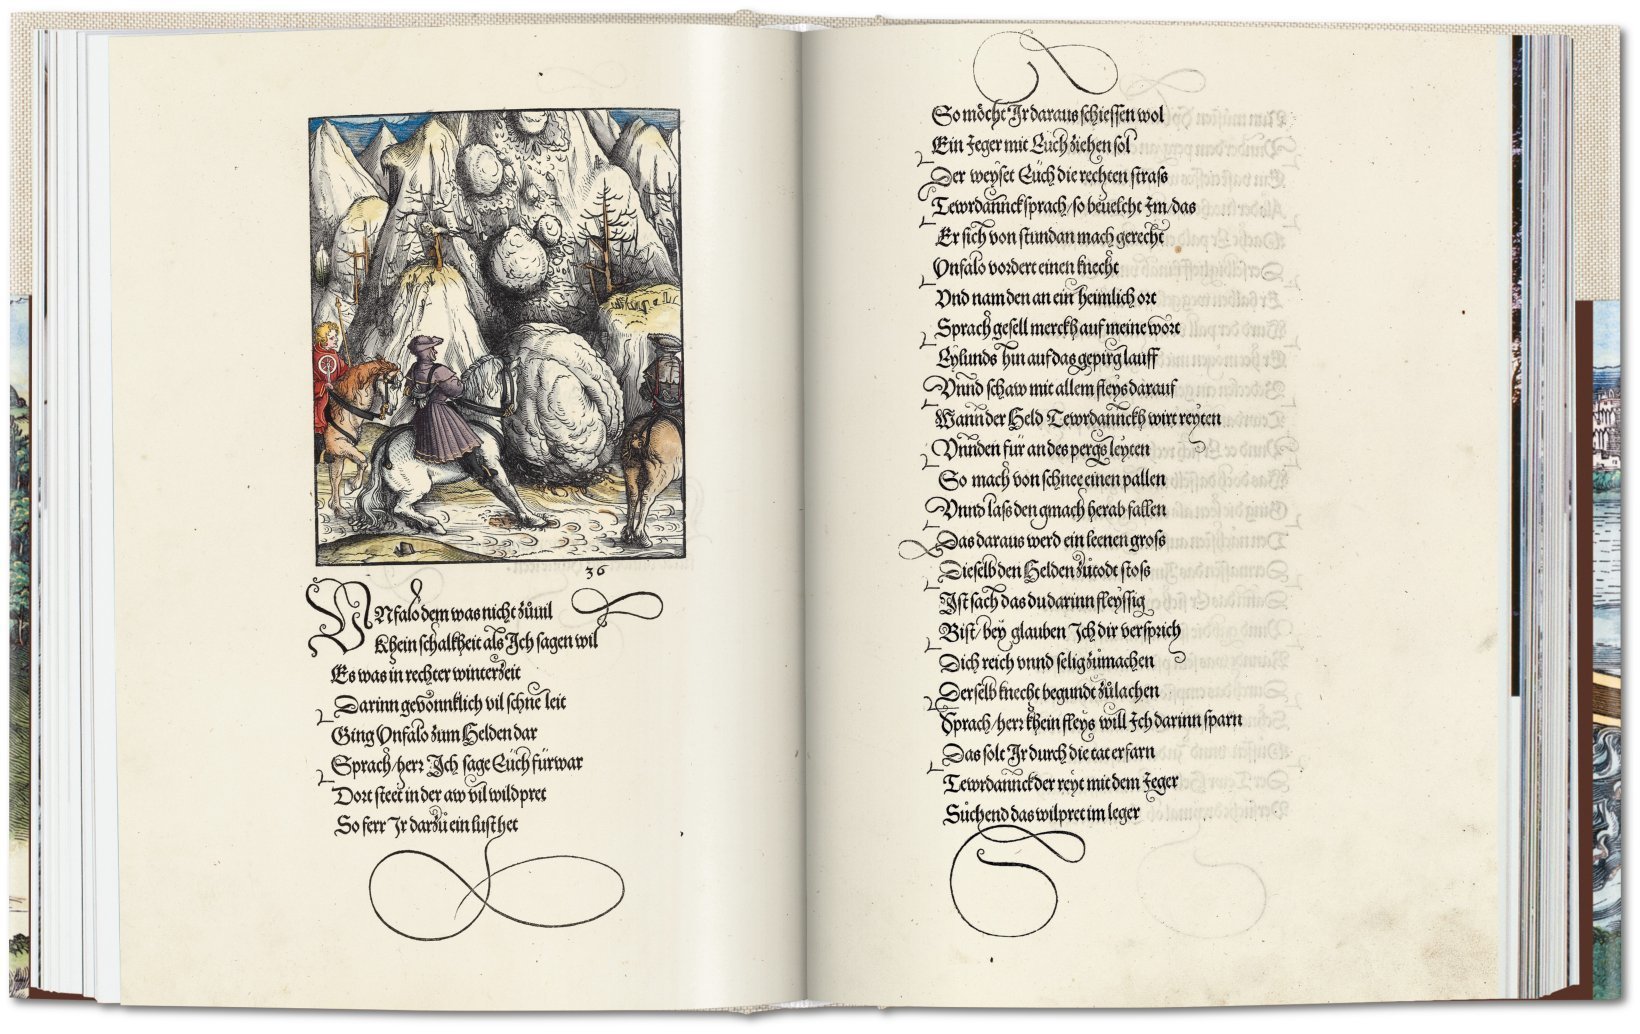 36
UNfalo dem was nicht zůuil
Khein schalkheit als Ich sagen wil
Es was in rechter winterzeit
Darinn gewonnklich vil schne leit
Ging Unfalo zum Helden dar
Sprach/herr Ich sage Euch fürwar
Dort steet in der aw vil wildpret
So ferr Ir darzů ein lust het
So möcht Ir daraus schiessen wol
Ein Jeger mit Euch ziehen sol
Der weyset Euch die rechten strass
Tewrdannck sprach/so beuelcht Im/das
Er sich von stundan mach gerecht
Unfalo vordert einen knecht
Vnd nam den an ein heimlich ort
Sprach gesell merckh auf meine wort
Eylunds hin auf das gepirg lauff
Vnnd schaw mit allem fleys darauf
Wann der Held Tewrdannckh wirt reyten
Vnnden für an des pergs leyten
So mach von schnee einen pallen
Vnnd lass den gmach herab fallen
Das daraus werd ein leenen gross
Dieselb den Helden zůtodt stoss
Ist sach das du darinn fleyssig
Bist/bey glauben Ich dir versprich
Dich reich vnnd selig zůmachen
Derselb knecht begundt zůlachen
Sprach/herr khein fleys will Ich darinn sparn
Das solt Ir durch die tat erfarn
Tewrdannck der reyt mit dem Jeger
Sůchend das wilpret im leger